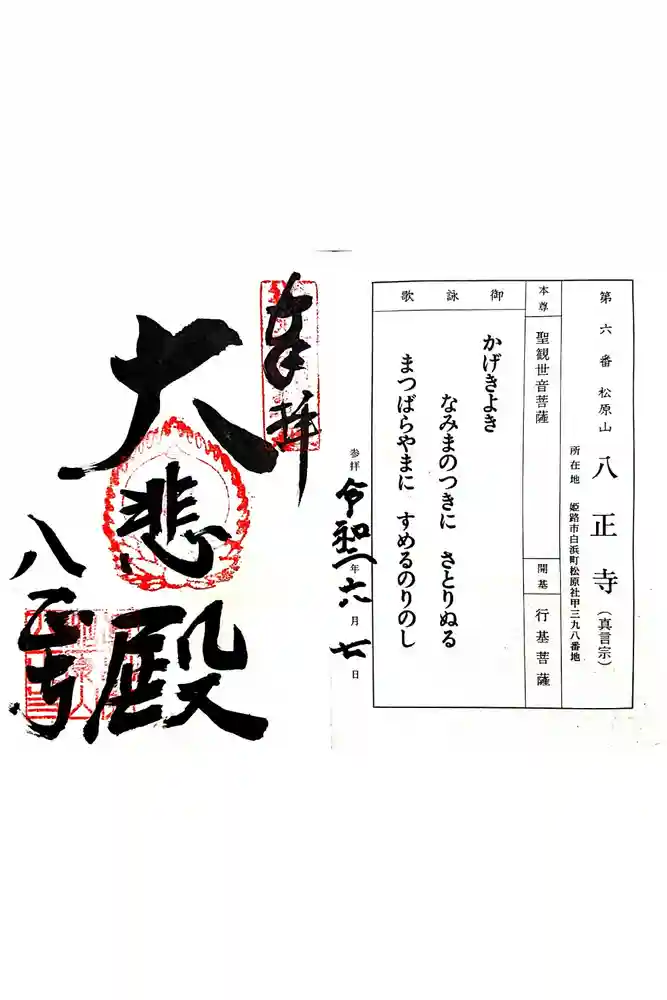 第六番 松原山 八正寺 (真言宗)
所在地 姫路市白浜町松原社甲三九八番地
本尊 聖観世音菩薩
開基 行基菩薩
御詠歌
かげきよき
なみまのつきに さとりぬる
まつばらやまに すめるのりのし
参拝 令和二年六月七日
奉拝
大悲殿
八正寺